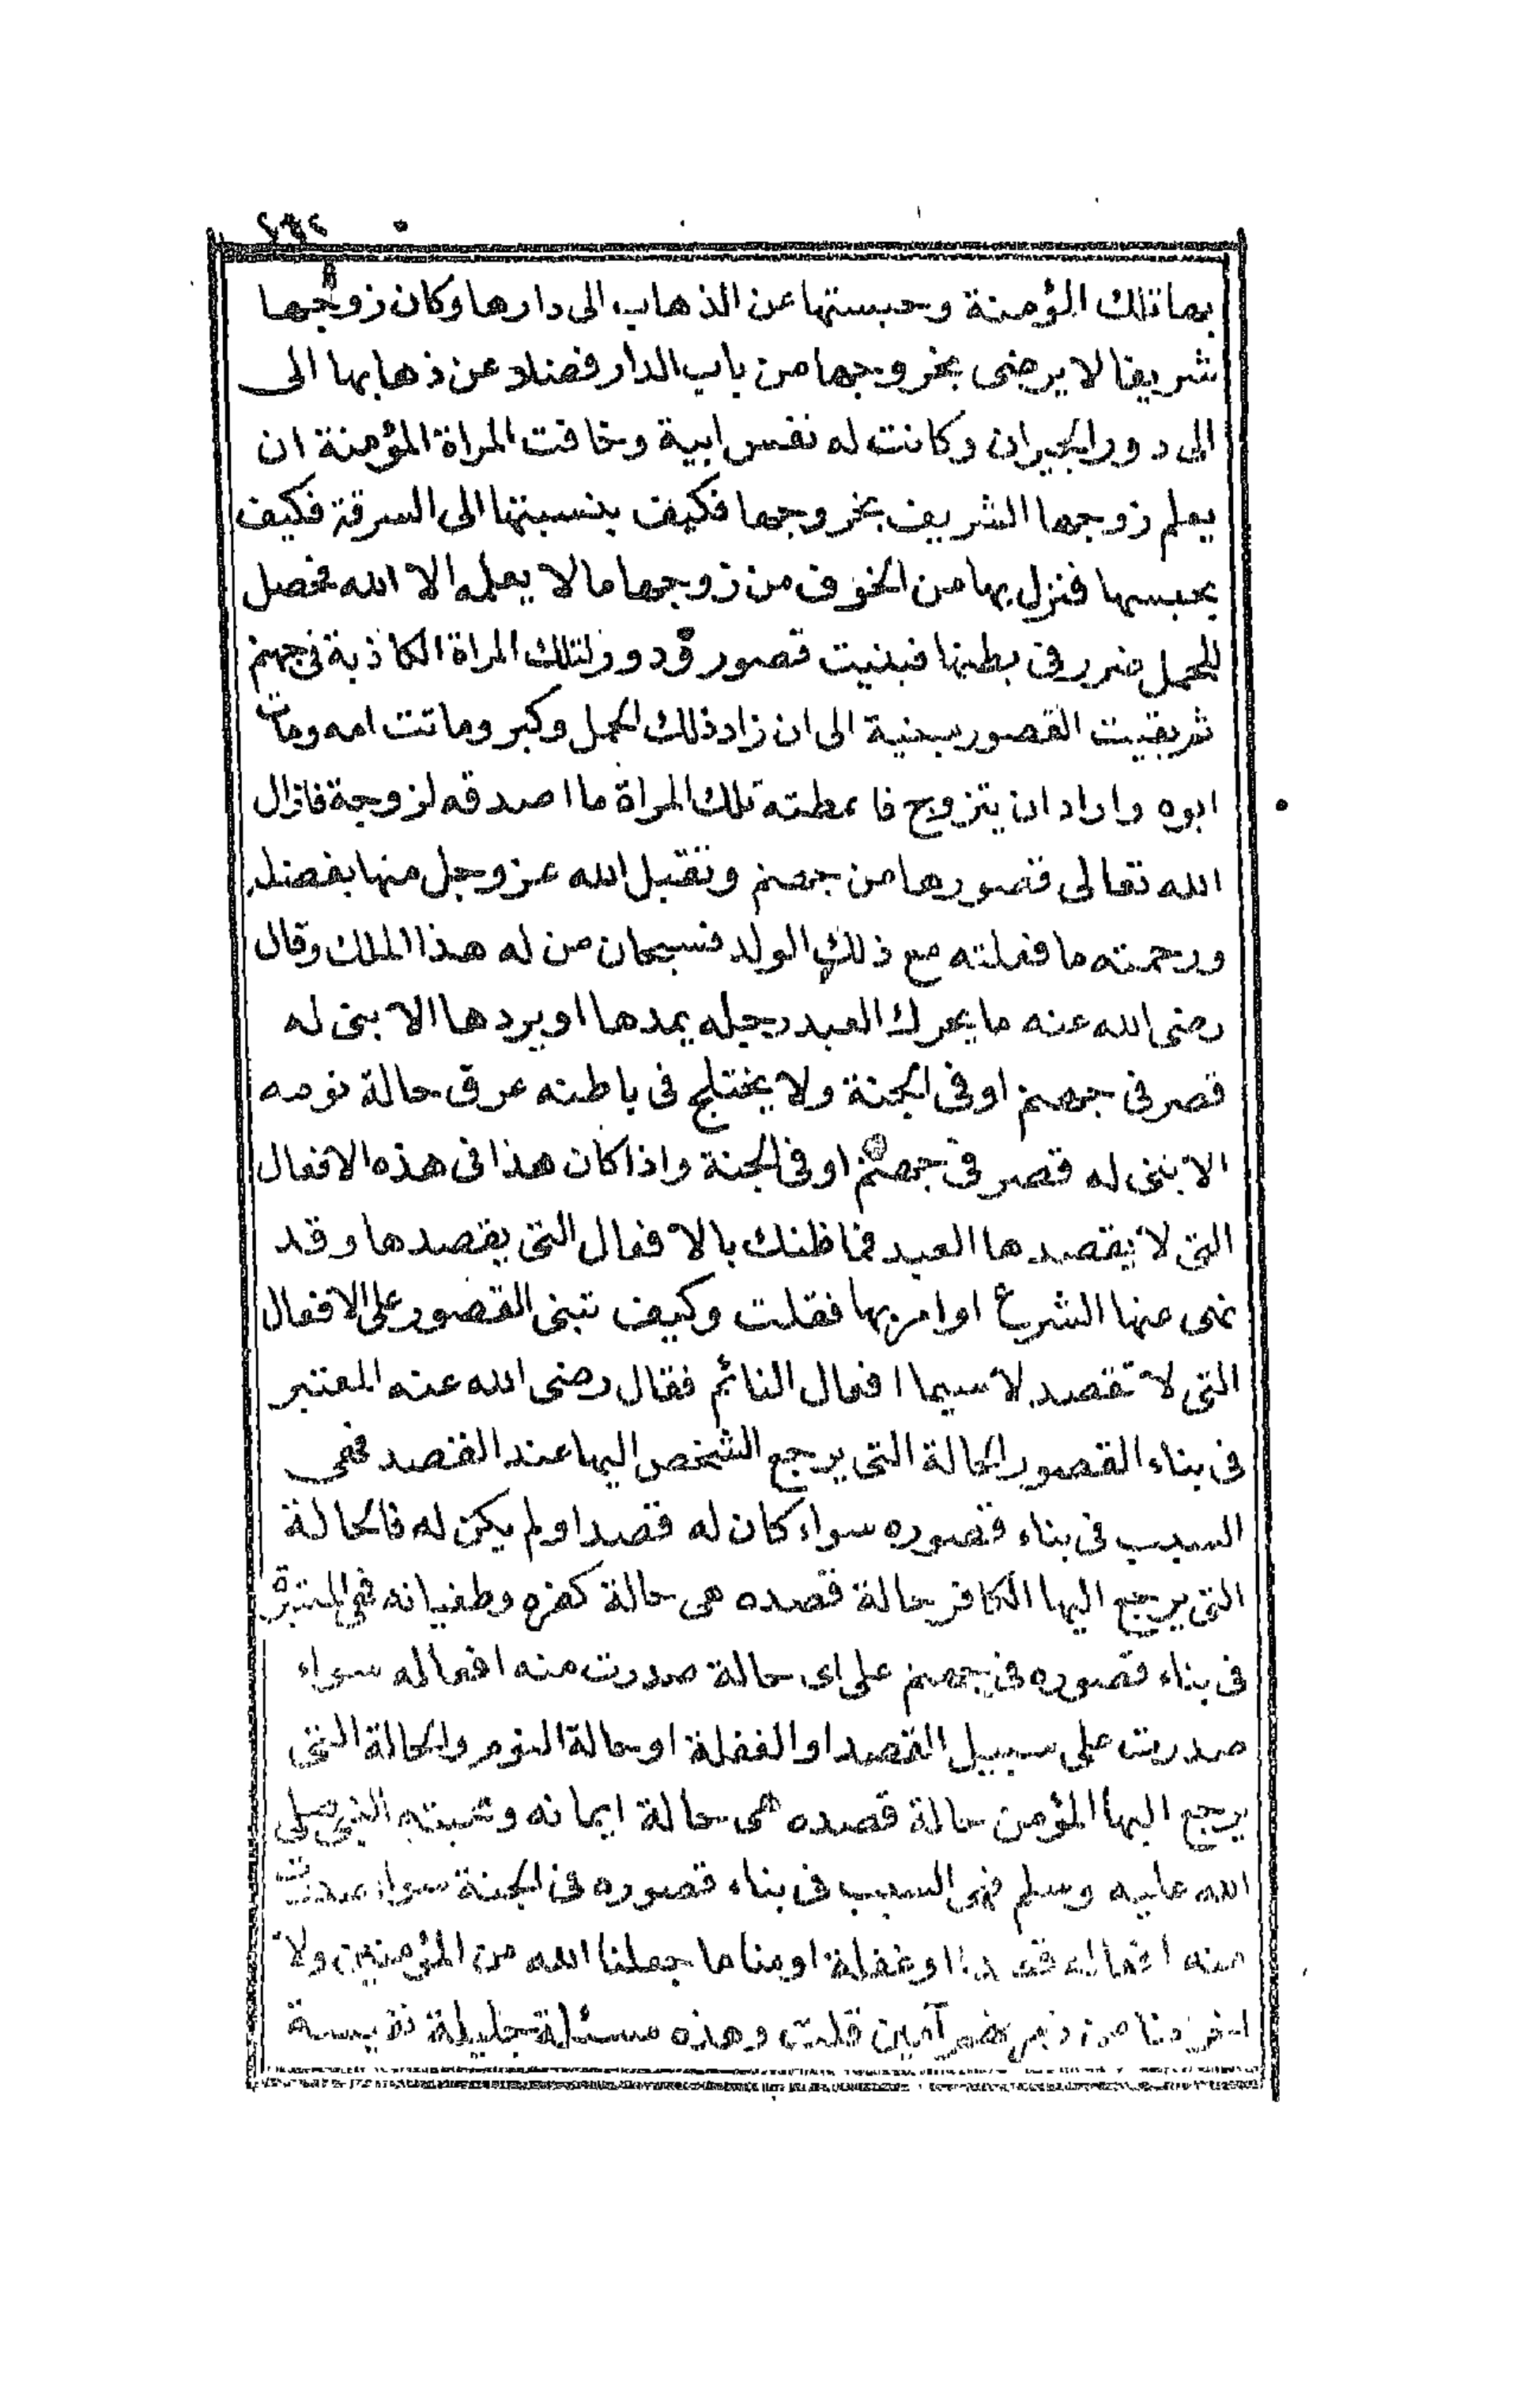 بها تلك المؤمنة وحبستها عن الذهاب الى دارها وكان زوجها
شريفا لا يرضى بخروجها من باب الدار فضلا عن ذهابها الى
الى دور الجيران وكانت له نفس ابية وخافت المراة المؤمنة ان
يعلم زوجها الشريف بخروجها فكيف بنسبتها الى السرقة فكيف
بحبسها فنزل بها من الخوف من زوجها ما لا يعلمه الا الله فحصل
للحمل ضرر فى بطنها فبنيت قصور ودور لتلك المراة الكاذبة فى جهنم
ثم بقيت القصور مبنية الى ان زاد ذلك الحمل وكبر وماتت امه ومات
ابوه واراد ان يتزوج فاعطته تلك المراة ما اصدقه لزوجة فازال
الله تعالى قصورها من جهنم وتقبل الله عز وجل منها بفضله
ورحمته ما فعلته مع ذلك الولد فسبحان من له هذا الملك وقال
رضى الله عنه ما يحرك العبد رجله يمدها او يردها الا بنى له
قصر فى جهنم او فى الجنة ولا يختلج فى باطنه عرق حالة نومه
الا بنى له قصر فى جهنم او فى الجنة واذا كان هذا فى هذه الافعال
التى لا يقصدها العبد فما ظنك بالافعال التى يقصدها وقد
نهى عنها الشرع او امر بها فقلت وكيف تبنى القصور على الافعال
التى لا تقصد لا سيما افعال النائم فقال رضى الله عنه المعتبر
فى بناء القصور الحالة التى يرجع الشخص اليها عند القصد فهى
السبب فى بناء قصوره سواء كان له قصد او لم يكن له فالحالة
التى يرجع اليها الكافر حالة قصده هى حالة كفره وطغيانه فهى المعتبرة
فى بناء قصوره فى جهنم على اى حالة صدرت منه افعاله سواء
صدرت على سبيل القصد او الغفلة او حالة النوم والحالة التى
يرجع اليها المؤمن حالة قصده هى حالة ايمانه ومحبته النبى صلى
الله عليه وسلم فهى السبب فى بناء قصوره فى الجنة سواء صدرت
منه افعاله قصدا او غفلة او مناما جعلنا الله من المؤمنين ولا
من آمين قلت وهذه مسئلة جليلة نفيسة